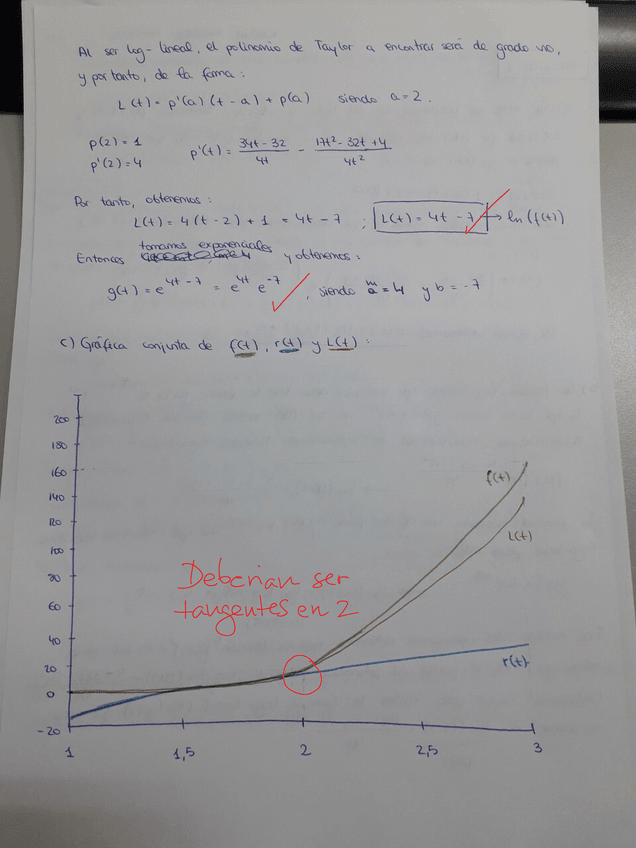 Al ser log-lineal, el polinomio de Taylor a encontrar será de grado uno,
y por tanto, de la forma:
L(t) = p'(a)(t-a) + p(a) siendo a=2.
p(2) = 1
p'(2) = 4
p'(t) = (34t-32)/4t - (17t²-32t+4)/4t²
Por tanto, obtenemos:
L(t) = 4(t-2) + 1 = 4t - 7 ; L(t) = 4t - 7 → ln(f(t))
tomamos exponenciales
Entonces y obtenemos:
g(t) = e^{4t-7} = e^{4t} e^{-7}, siendo m = 4 y b = -7
c) Gráfica conjunta de f(t), r(t) y L(t):
200
180
160
140
120
100
80
60
40
20
0
-20
f(t)
L(t)
r(t)
Deberian ser
tangentes en 2
1 1,5 2 2,5 3